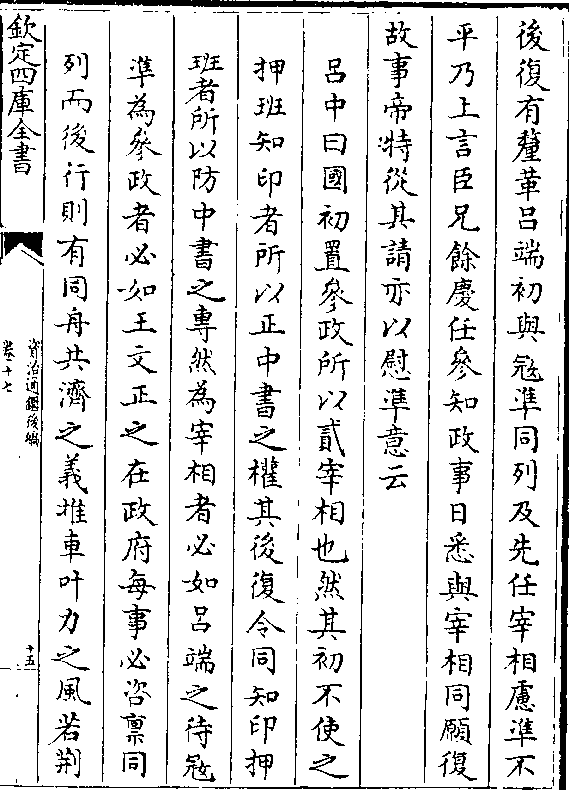 後復有釐革呂端初與冦準同列及先任宰相慮準不
平乃上言臣兄餘慶任參知政事日悉與宰相同願復
故事帝特從其請亦以慰準意云
呂中曰國初置參政所以貳宰相也然其初不使之
押班知印者所以正中書之權其後復令同知印押
班者所以防中書之專然為宰相者必如呂端之待冦
準為參政者必如王文正之在政府每事必咨禀同
列而後行則有同舟共濟之義推車叶力之風若荆
欽定四庫全書
資治通鑑後編
卷十七
十五